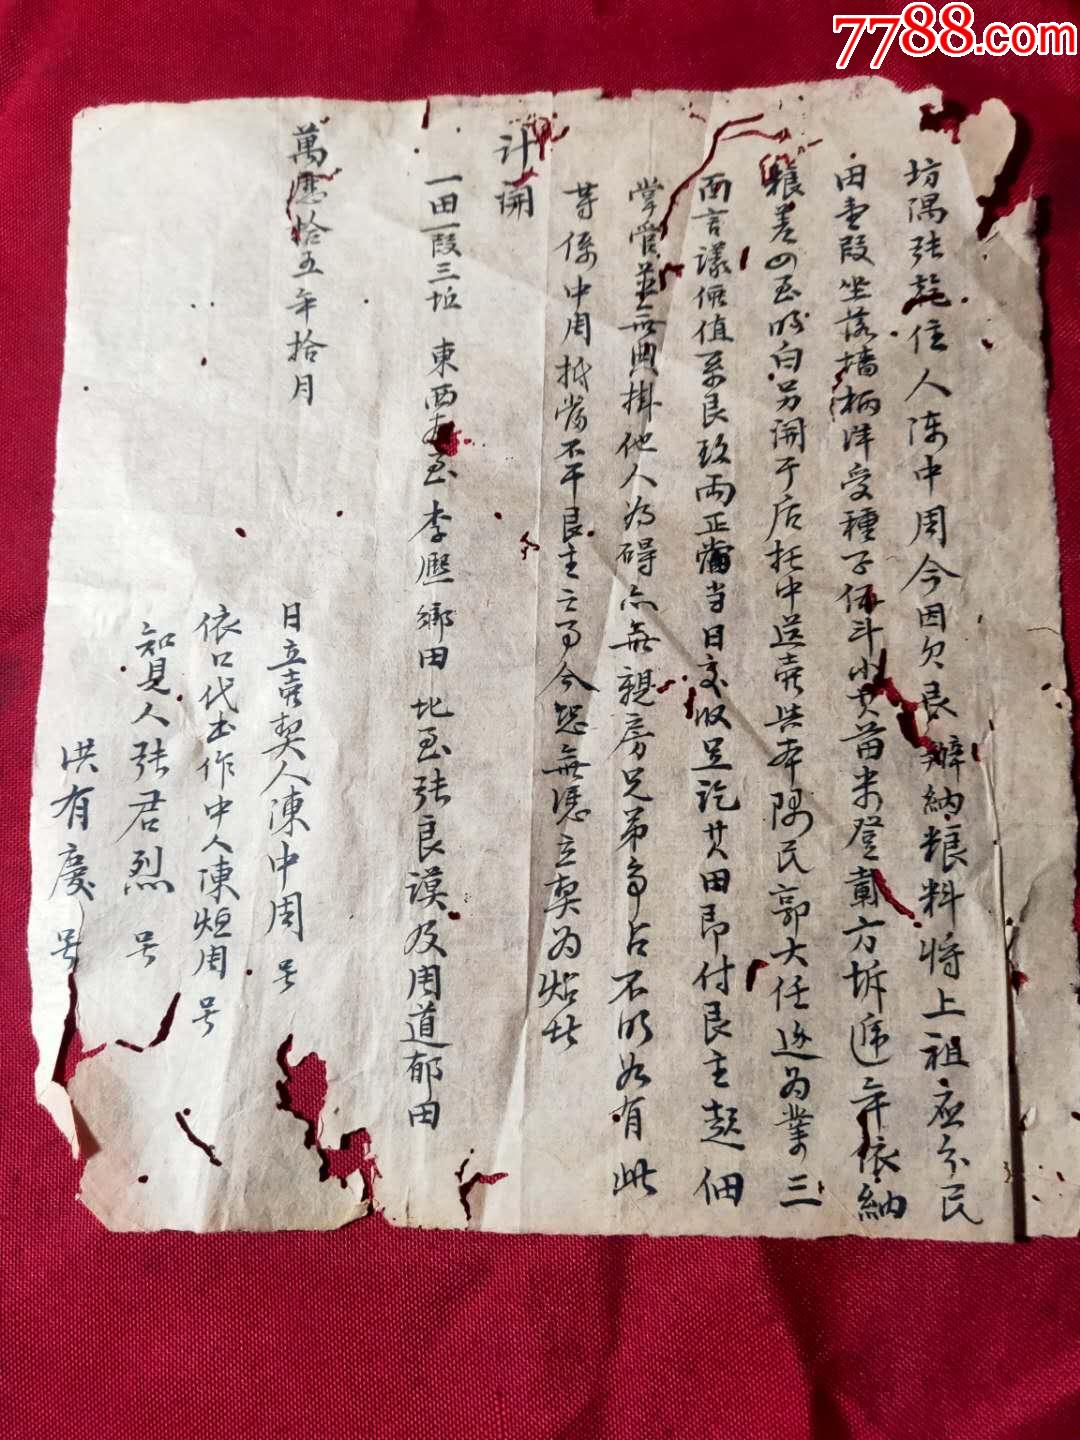 7788.com
坊隅張 住人陳中周今因欠艮辦納粮料将上祖应分民
田壹段坐落墙柄洋受種子伍斗 其苗米登 方折遞年依納
粮差四至明白另開于后托中送賣与本隅民郭大任邊为業三
面言議價值系艮玖両正當当日交收足訖其田即付艮主起佃
掌管並無典掛他人为碍亦無親房兄弟争占不明如有此
等係中周抵當不干艮主之事今恐無憑立契为炤者
计開
一田一段三坵 東西 至李熙鄉田北至張良謨及周道郁田
萬曆拾五年拾月
日立賣契人陳中周 号
依口代书作中人陳烜周 号
知見人張君烈 号
洪有慶 号